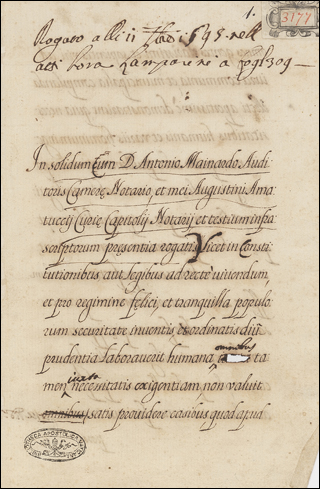 1.
3177
Rogato alli ii 1695 nell
atti
In solidum Cum D. Antonio Mainardo Audi
toris Camerę Notario, et mei Augustini Ama
tuccij Curię Capitolij Notarij et testium infra
scriptorum presentia rogatis, Licet in Consti
tutionibus aut legibus ad recte viuendum,
et pro regimine felici, et tranquilla populo
rum securitate inuentis, et ordinatis diu
prudentia laborauerit humana omnibus ta
men iuxta necessitatis exigentiam, non valuit
omnibus satis prouidere casibus, quod apud